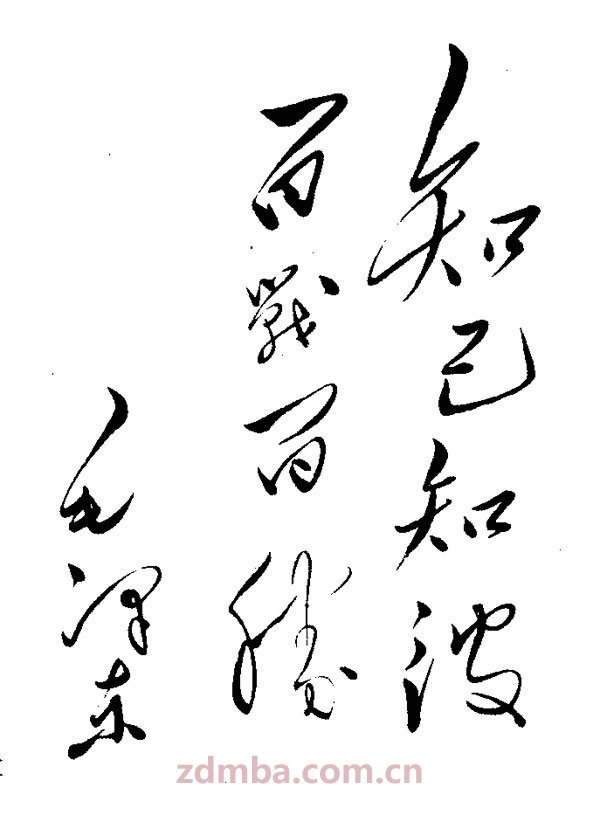 知己知彼
百戰百勝
毛泽东
zdmba.com.cn